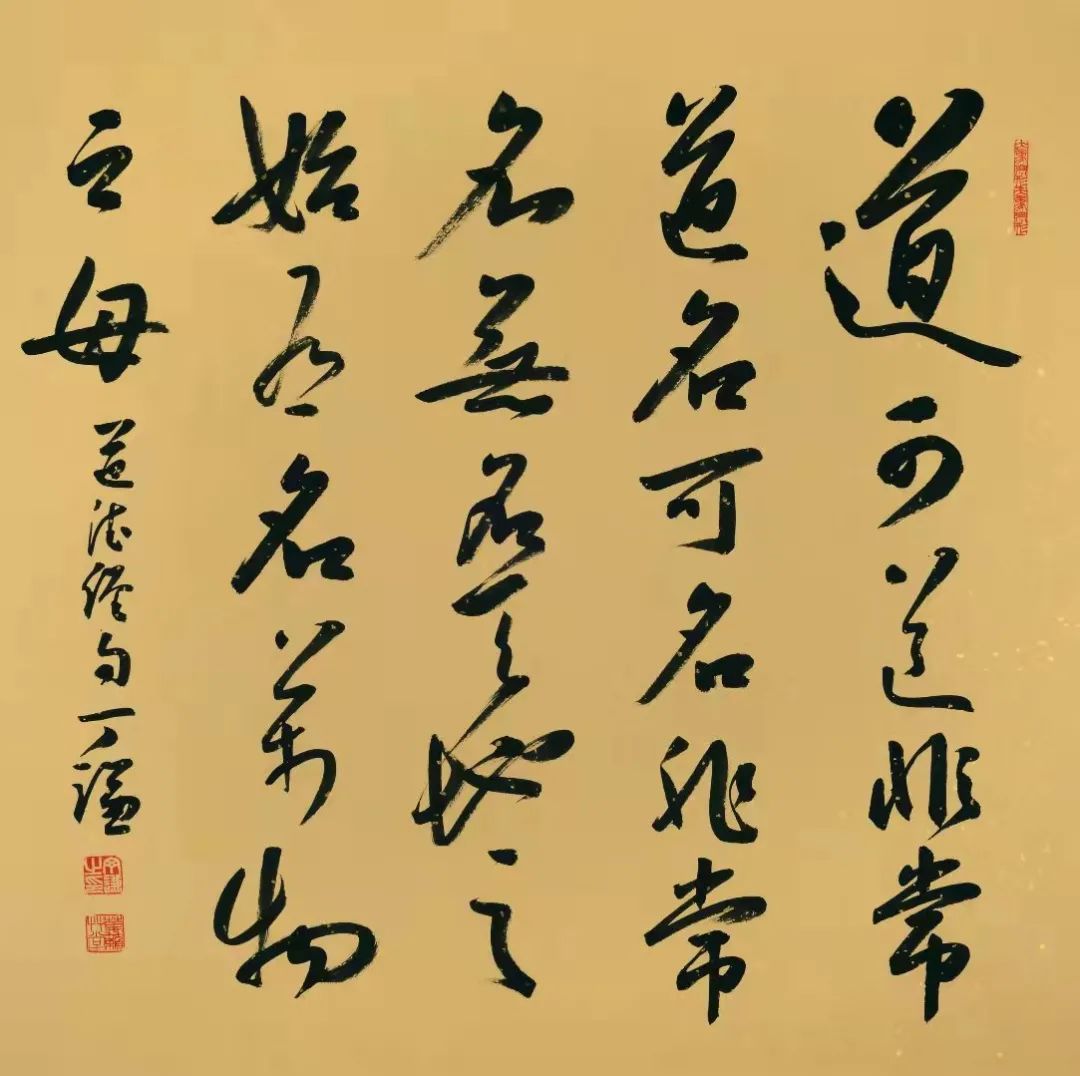 道可道非常
道名可名非常
名無名天地之
始有名萬物
之母
道德經句丁